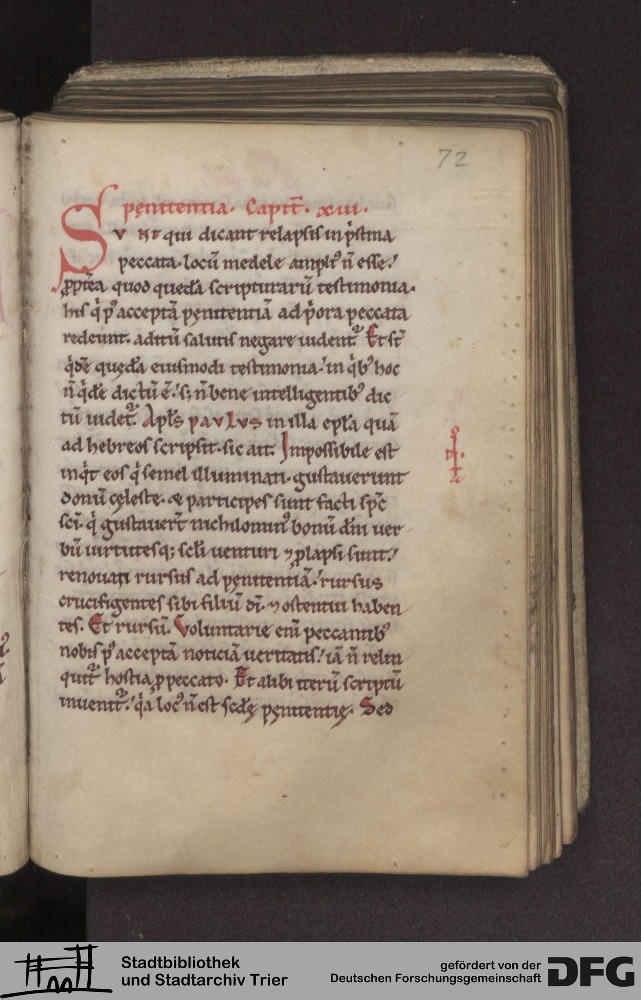 72
pęnitentia. Capit̄. xiii.
SVNT qui dicant relapsis in p͛stina
peccata. locū medele ampli᷒ n̄ esse.
ꝓpt̾ea quod quedā scripturarū testimonia.
his q̇ p᷒ acceptā pęnitentiā ad p͛ora peccata
redeunt. aditū salutis negare uident᷑. Et st̄
q̇dē quedā eiusmodi testimonia. in q̇b᷒ hoc
n̄ q̇dē dictū ē. s; n̄ bene intelligentib᷒ dic
tū uidet᷑. Apl̄s paulus in illa epl̄a quā
ad hebreos scripsit. sic ait. Impossibile est
inq̇t eos q̇ semel illuminati. gustauerunt
donū cęleste. & participes sunt facti sp̄c
sc̄i. q̇ gustauer̄t nichilomin᷒ bonū dn̄i uer
bū uirtutesq; sc̄li uenturi ⁊ ꝓlapsi sunt.
renouari rursus ad pęnitentiā. rursus
crucifigentes sibi filiū dī. ⁊ ostentui haben
tes. Et rursū. Voluntarie enī peccantib᷒
nobis p᷒ acceptā noticiā ueritatis. iā n̄ relin
quit᷑ hostia ꝓ peccato. Et alibi iterū scriptū
inuenit᷑. q̇a loc᷒ n̄ est sc̄dę pęnitentię. Sed
Stadtbibliothek
und Stadtarchiv Trier
gefördert von der
Deutschen Forschungsgemeinschaft
DFG